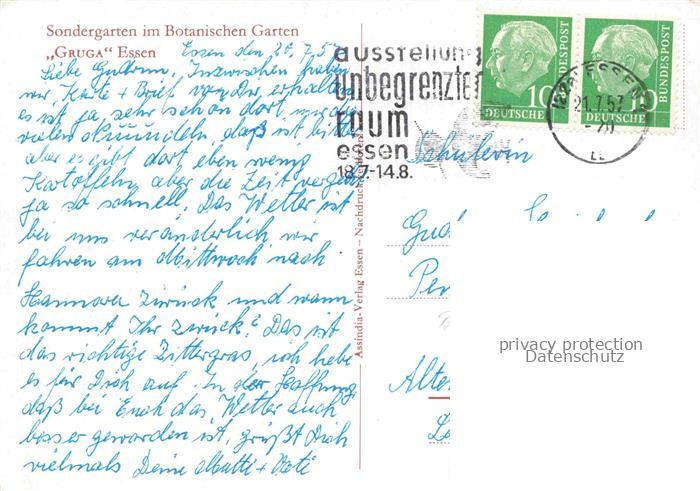 Sondergarten im Botanischen Garten
„GRUGA“ Essen Essen den 20.7.57
Liebe Gudrun, Inzwischen haben
wir Karte + Brief von Dir erhalten
es ist ja sehr schön dort mit den
vielen daß ist bitter
aber es gibt dort eben wenig
Kartoffeln, aber die Zeit vergeht
ja so schnell. Das Wetter ist
bei uns veränderlich, wir
fahren am Mittwoch nach
Hannover zurück und wann
kommt Ihr zurück? Das ist
das richtige Zittergras, ich hebe
es für Dich auf. In der Hoffnung,
daß bei Euch das Wetter auch
besser geworden ist, grüßt Dich
vielmals Deine Mutti + Vati
Assindia-Verlag Essen – Nachdruck verboten
ausstellung
unbegrenzter
raum
essen
18.7.-14.8.
10
DEUTSCHE
BUNDESPOST
10
DEUTSCHE
BUNDESPOST
ESSEN
21.7.57
Schülerin
Gud
Pen
privacy protection
Datenschutz
Alte